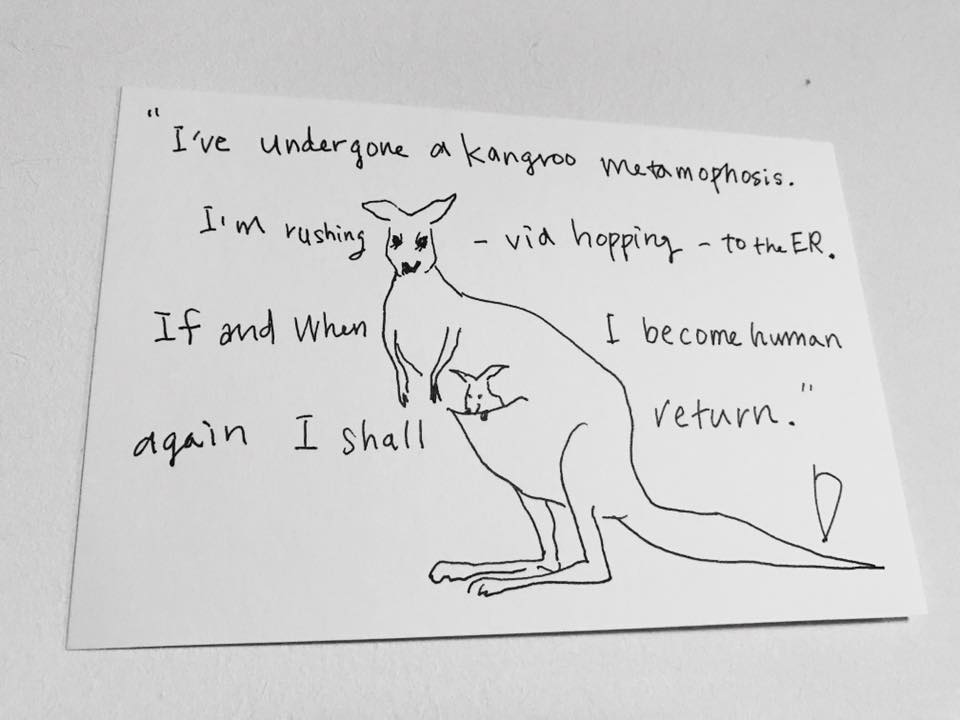 "I've undergone a kangroo metamophosis.
I'm rushing - via hopping - to the ER.
If and when I become human
again I shall return."